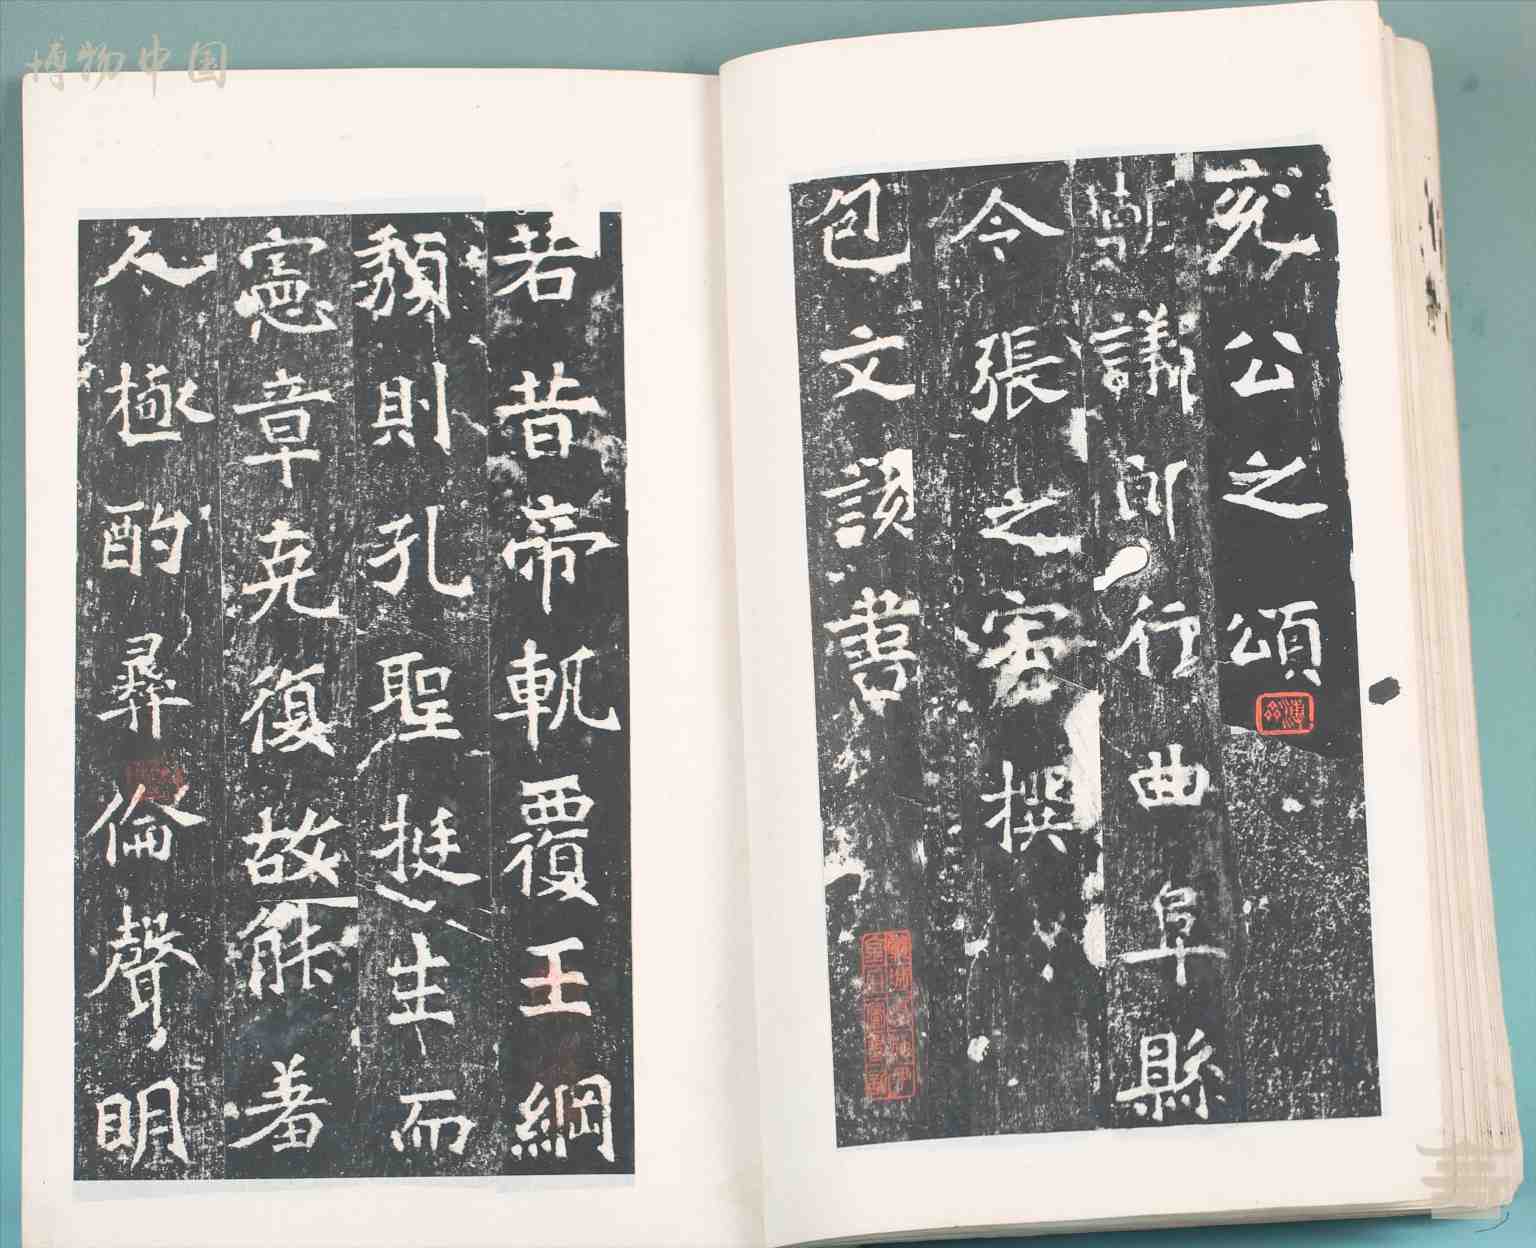 博物中国
兖公之頌
朝議郎行曲阜縣
令張之宏撰
包文該書
若昔帝軌覆王綱
頹則孔聖挺生而
憲章堯復故能蓄
人極酌彞倫聲明